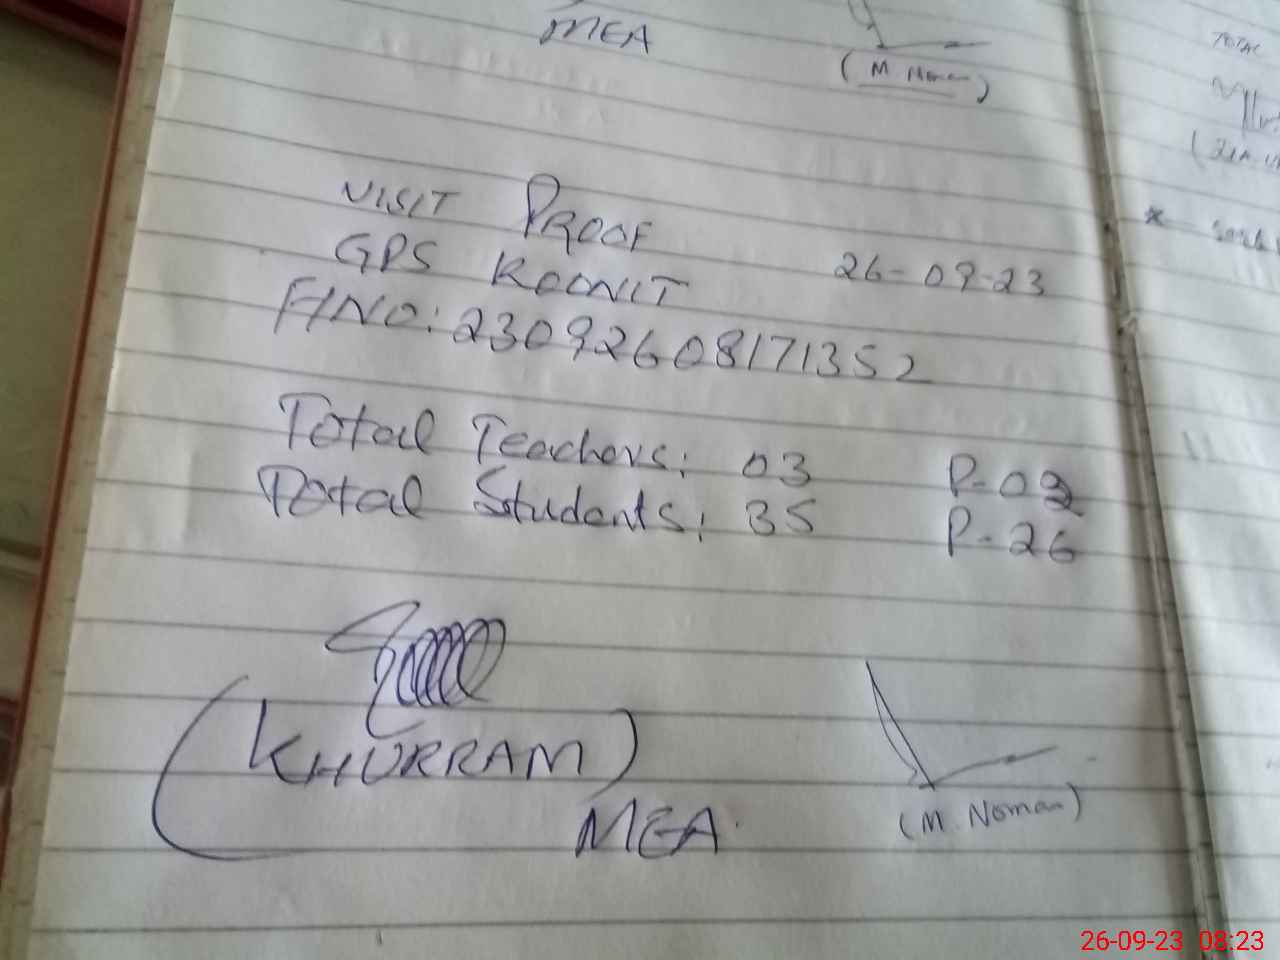 MEA
(M. Noman)
TOTAL
VISIT PROOF
GPS KOONIT 26-09-23
F/NO: 23092608171352
Total Teachers: 03 P-02
Total Students: 35 P-26
(KHURRAM)
MEA
(M. Noman)
26-09-23 08:23